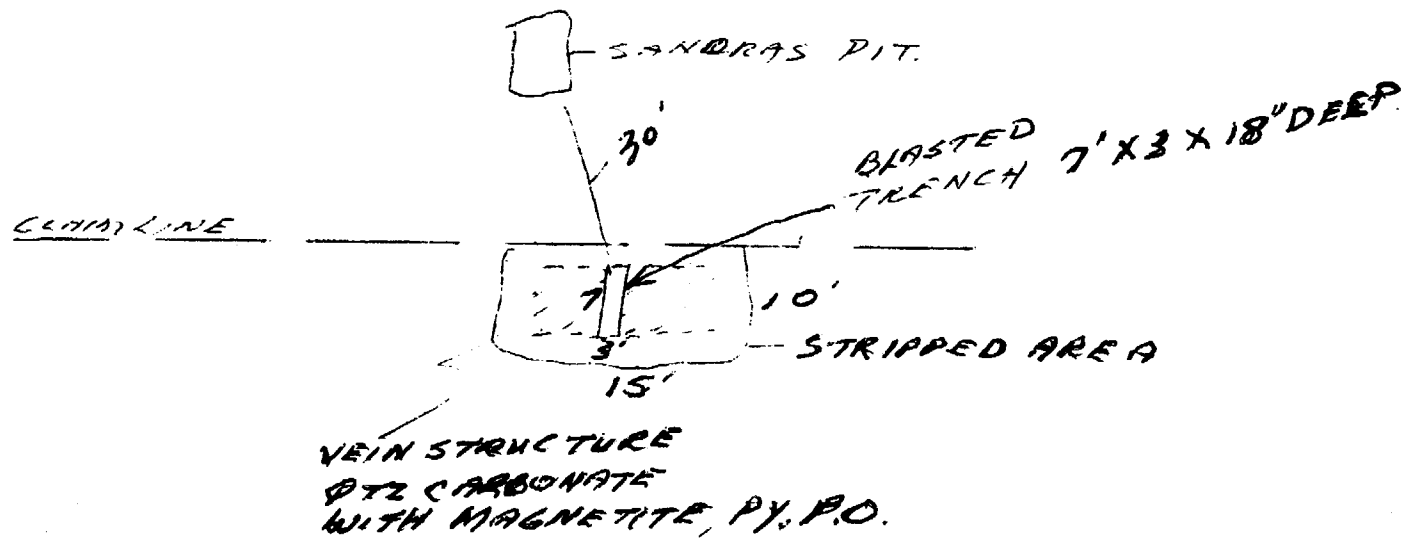 SANDRAS PIT.
30'
BLASTED
TRENCH 7' X 3 X 18" DEEP
CLAIM LINE
7'
10'
3'
STRIPPED AREA
15'
VEIN STRUCTURE
QTZ CARBONATE
WITH MAGNETITE, PY. P.O.